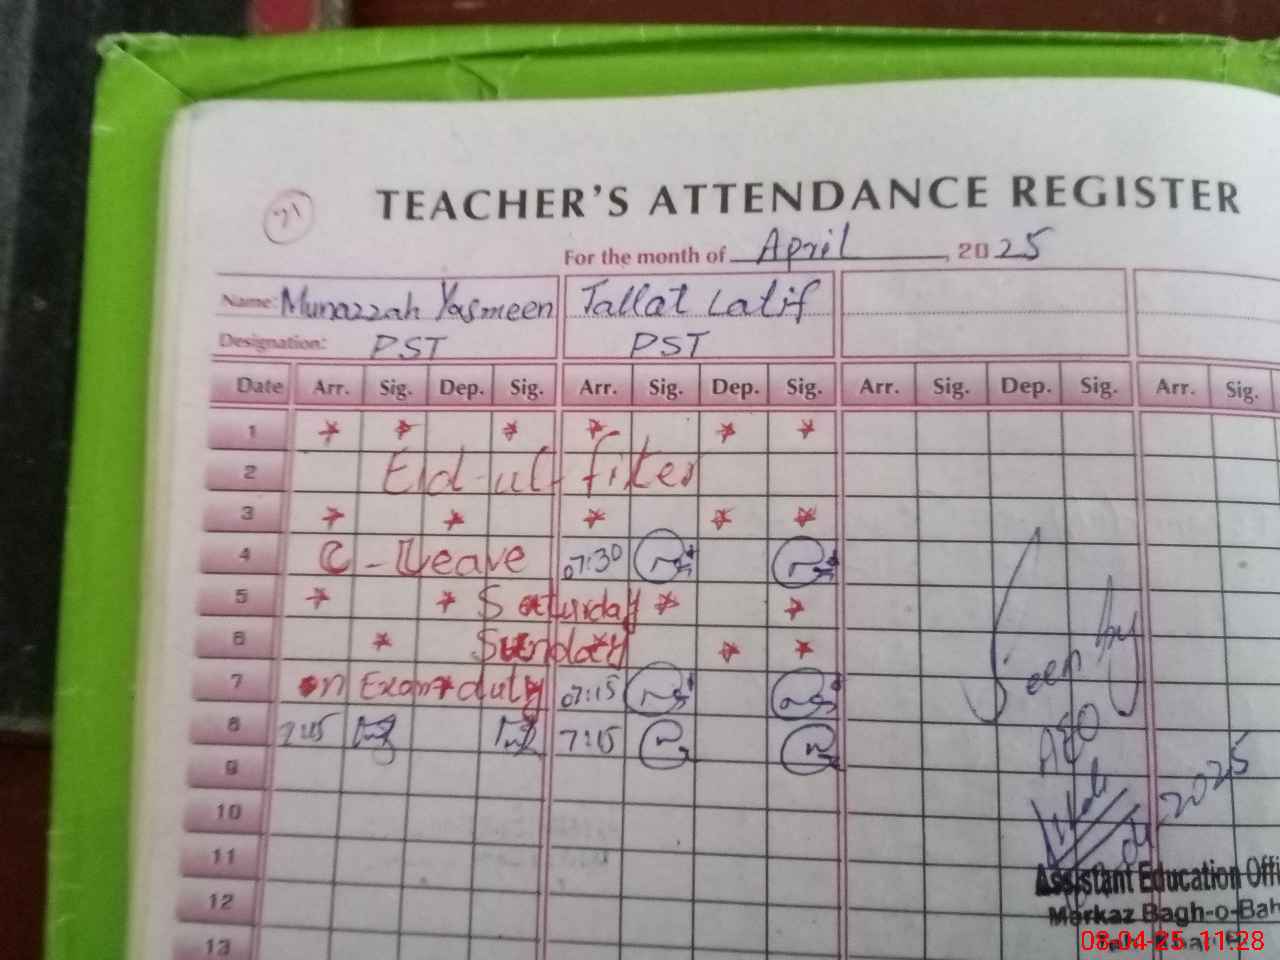 TEACHER'S ATTENDANCE REGISTER
For the month of April, 2025
Name: Munazzah Yasmeen Tallat Latif
Designation: PST PST
Date Arr. Sig. Dep. Sig. Arr. Sig. Dep. Sig. Arr. Sig. Dep. Sig. Arr. Sig.
1
2 Eid-ul-fiter
3
4 C-Leave 07:30
5 Saturday
6 Sunday
7 on Exam duty 07:15
8 7:15 7:15
9
10
11
12
13
Seen by
AEO
2025
Assistant Education Offi
Markaz Bagh-o-Bah
08-04-25 11:28